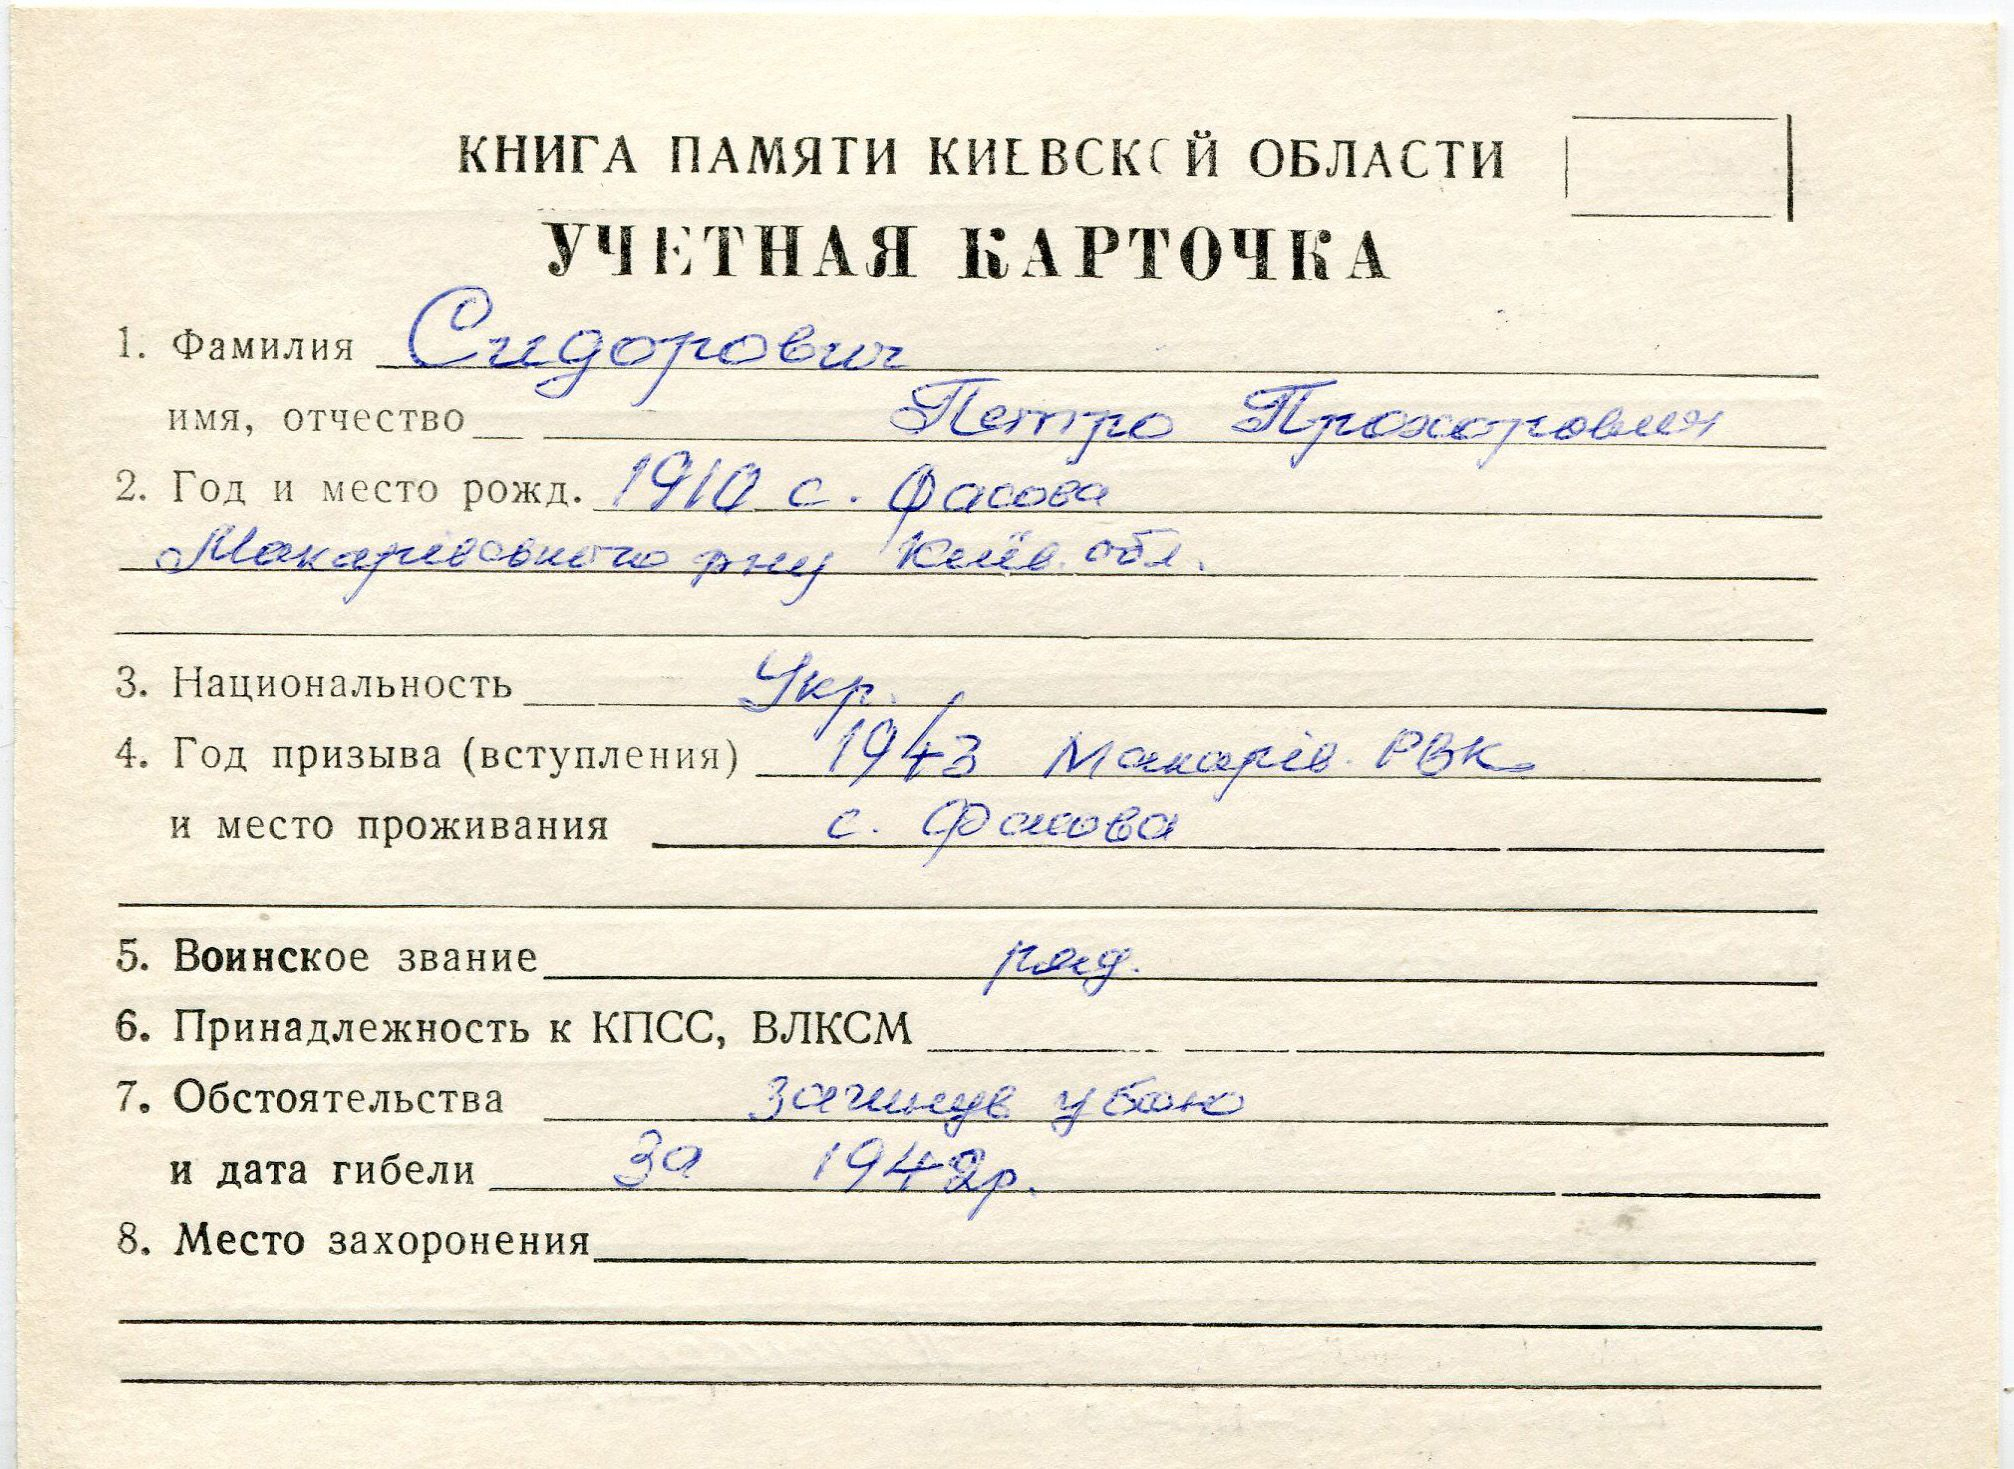 КНИГА ПАМЯТИ КИЕВСКОЙ ОБЛАСТИ
УЧЕТНАЯ КАРТОЧКА
1. Фамилия Сидорович
имя, отчество Петро Прохорович
2. Год и место рожд. 1910 с. Фасова
Макарівського рну Київ. обл.
3. Национальность Укр.
4. Год призыва (вступления) 1943 Макарів. РВК
и место проживания с. Фасова
5. Воинское звание ряд.
6. Принадлежность к КПСС, ВЛКСМ
7. Обстоятельства загинув у бою
и дата гибели За 1942р.
8. Место захоронения